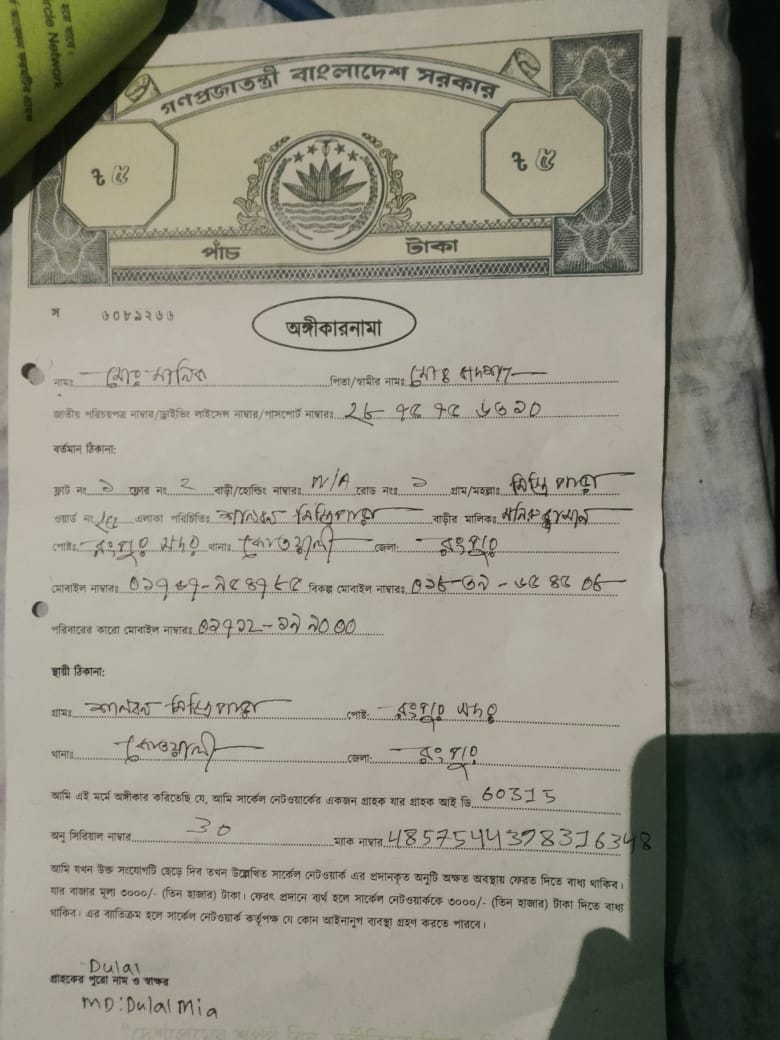 rcle Network
গণপ্রজাতন্ত্রী বাংলাদেশ সরকার
৳ ৫ ৳ ৫
পাঁচ টাকা
স ৬০৮৯২৬৬
অঙ্গীকারনামা
নামঃ মোঃ মানিক পিতা/স্বামীর নামঃ মোঃ
জাতীয় পরিচয়পত্র নাম্বার/ড্রাইভিং লাইসেন্স নাম্বার/পাসপোর্ট নাম্বারঃ
বর্তমান ঠিকানা:
ফ্লাট নং ১ ফ্লোর নং 2 বাড়ী/হোল্ডিং নাম্বারঃ N/A রোড নংঃ ১ গ্রাম/মহল্লাঃ মিস্ত্রি পাড়া
ওয়ার্ড নং এলাকা পরিচিতিঃ শালবন মিস্ত্রিপাড়া বাড়ীর মালিকঃ মনিরুজ্জামান
পোষ্টঃ রংপুর সদর থানাঃ কোতয়ালী জেলা: রংপুর
মোবাইল নাম্বারঃ বিকল্প মোবাইল নাম্বারঃ
পরিবারের কারো মোবাইল নাম্বারঃ
স্থায়ী ঠিকানা:
গ্রামঃ শালবন মিস্ত্রিপাড়া পোষ্ট: রংপুর সদর
থানাঃ কোতয়ালী জেলা: রংপুর
আমি এই মর্মে অঙ্গীকার করিতেছি যে, আমি সার্কেল নেটওয়ার্কের একজন গ্রাহক যার গ্রাহক আই ডি 60315
অনু সিরিয়াল নাম্বার 30 ম্যাক নাম্বার 4857544398316348
আমি যখন উক্ত সংযোগটি ছেড়ে দিব তখন উল্লেখিত সার্কেল নেটওয়ার্ক এর প্রদানকৃত অনুটি অক্ষত অবস্থায় ফেরত দিতে বাধ্য থাকিব।
যার বাজার মূল্য ৩০০০/- (তিন হাজার) টাকা। ফেরৎ প্রদানে ব্যর্থ হলে সার্কেল নেটওয়ার্ককে ৩০০০/- (তিন হাজার) টাকা দিতে বাধ্য
থাকিব। এর ব্যতিক্রম হলে সার্কেল নেটওয়ার্ক কর্তৃপক্ষ যে কোন আইনানুগ ব্যবস্থা গ্রহণ করতে পারবে।
Dulal
গ্রাহকের পুরো নাম ও স্বাক্ষর
MD:Dulal Mia